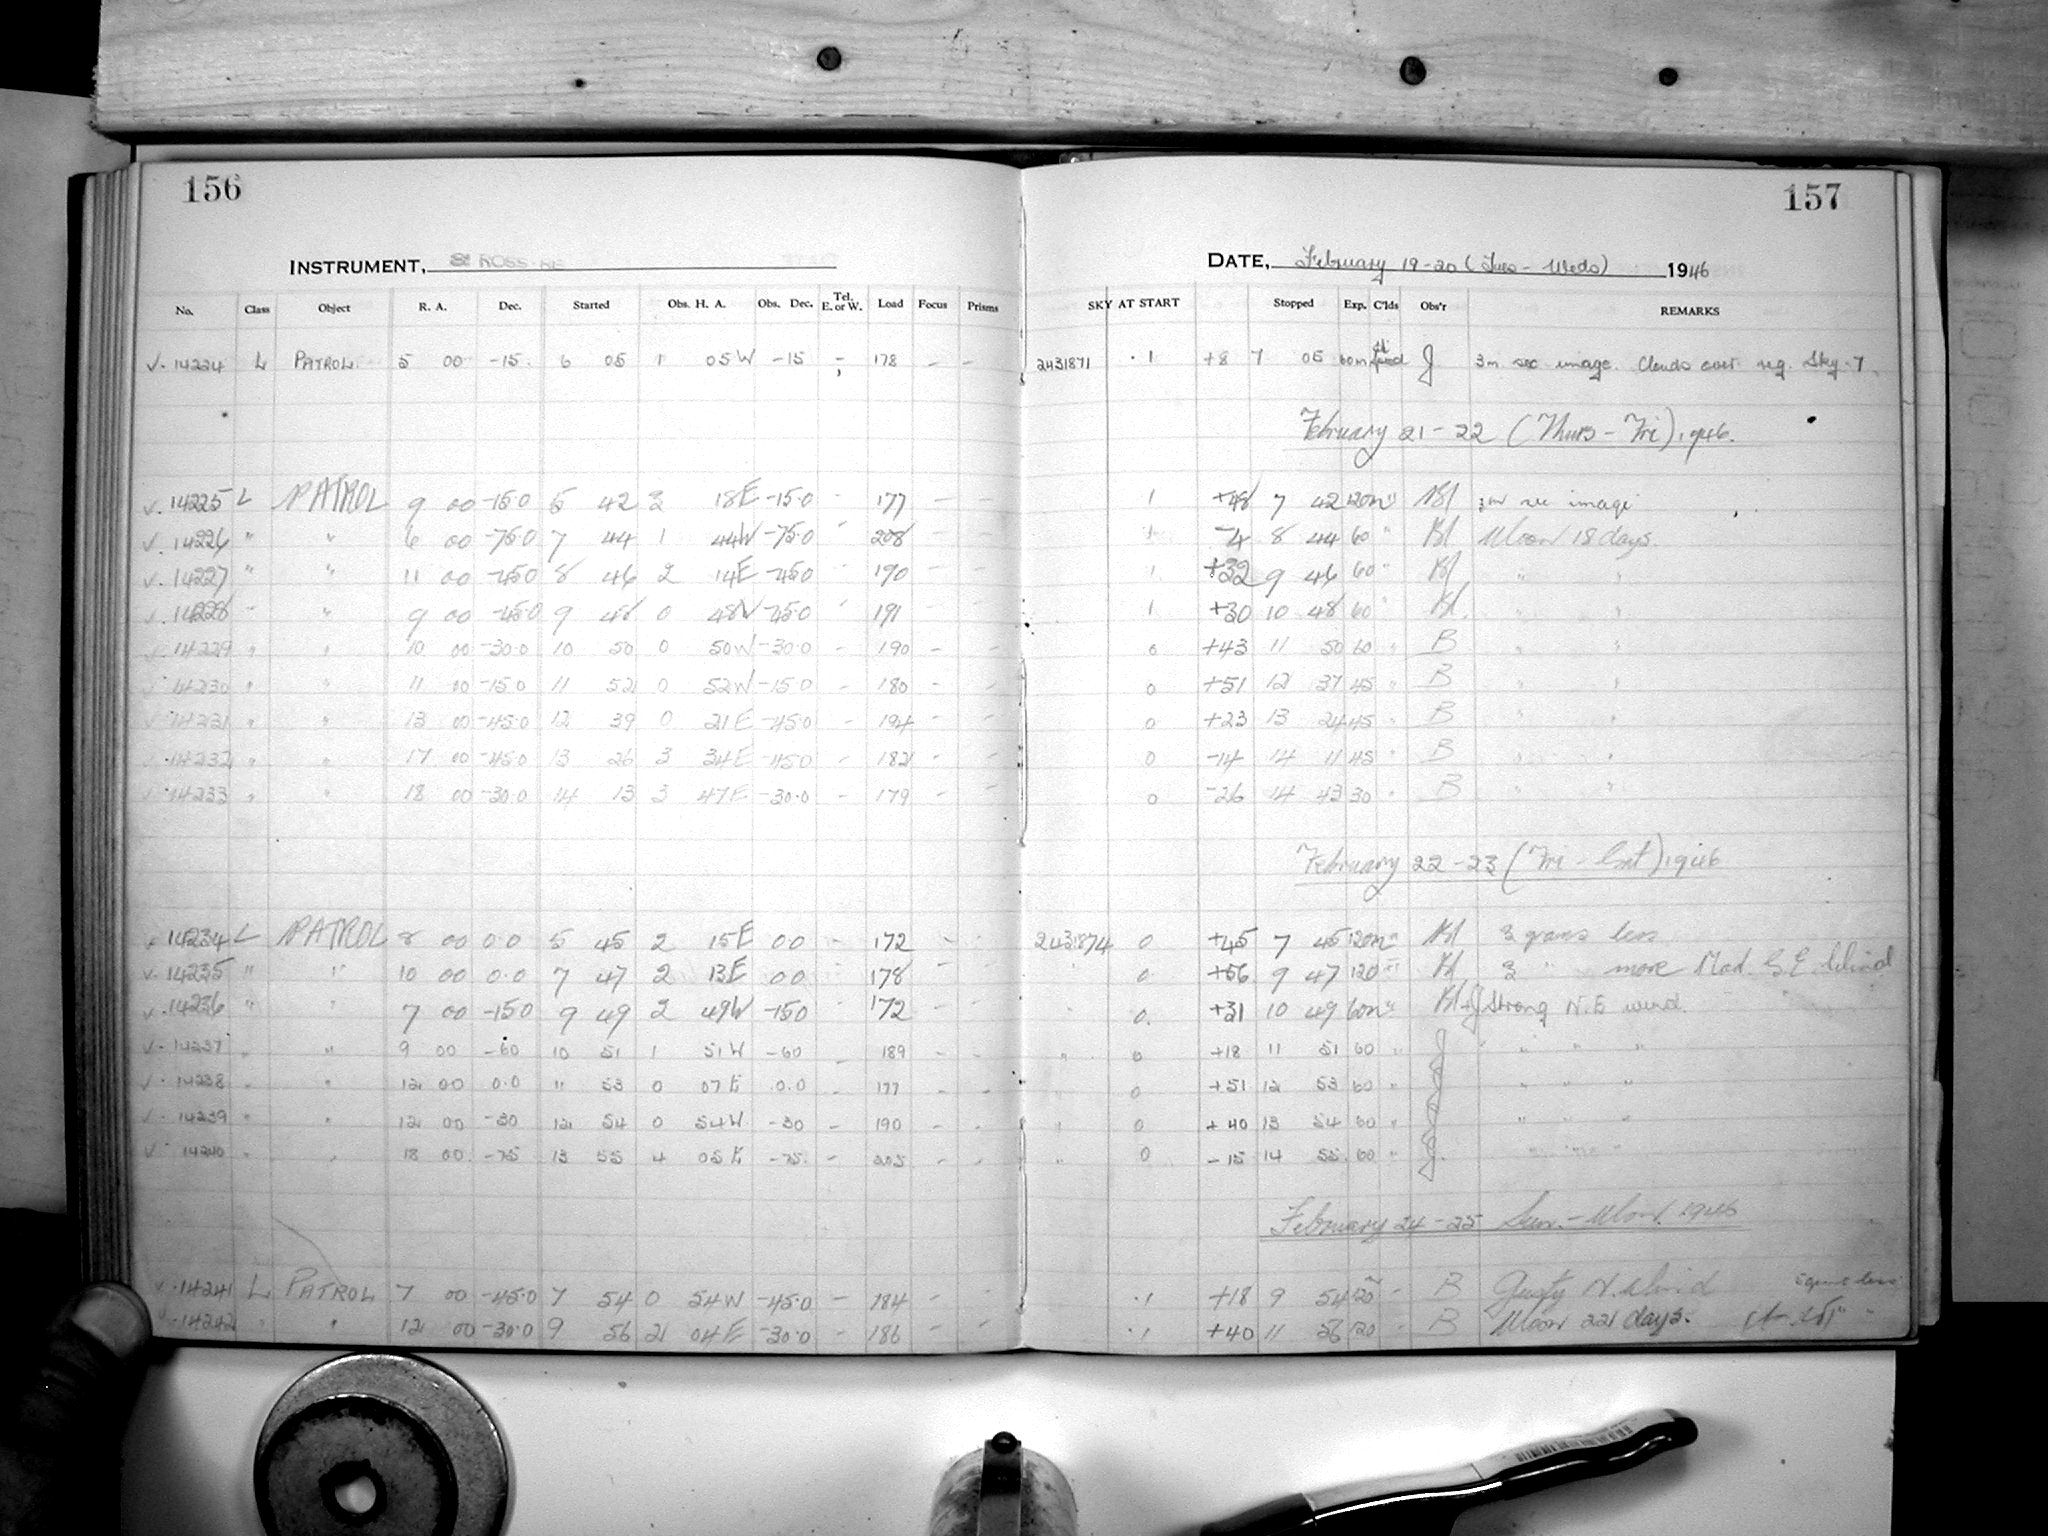 156
157
INSTRUMENT, ROSS
DATE, February 19-20 (Tues - Weds) 1946
No. Class Object R. A. Dec. Started Obs. H. A. Obs. Dec. Tel. E. or W. Load Focus Prisms SKY AT START Stopped Exp. C'lds Obs'r REMARKS
v. 14224 L PATROL 5 00 -15. 6 05 1 05W -15 - 178 - - 2431871 .1 +8 7 05 60m J 3m sec image. Clouds over reg. Sky .7
February 21-22 (Thurs - Fri) 1946.
v. 14225 L PATROL 9 00 -15.0 5 42 3 18E -15.0 - 177 - - 1 +48 7 42 120m " Bl 3m sec image
v. 14226 " " 6 00 -75.0 7 44 1 44W -75.0 " 208 - - 1 -4 8 44 60 " Bl Moon 18 days.
v. 14227 " " 11 00 -45.0 8 46 2 14E -45.0 " 190 - - 1 +32 9 46 60 " Bl " "
v. 14228 " " 9 00 -45.0 9 48 0 48W -45.0 " 191 - - 1 +30 10 48 60 " Bl. " "
v. 14229 " " 10 00 -30.0 10 50 0 50W -30.0 - 190 - - 0 +43 11 50 60 " B " "
v. 14230 " " 11 00 -15.0 11 52 0 52W -15.0 - 180 - - 0 +51 12 37 45 " B " "
v. 14231 " " 13 00 -45.0 12 39 0 21E -45.0 - 194 - - 0 +23 13 24 45 " B " "
v. 14232 " " 17 00 -45.0 13 26 3 34E -45.0 - 182 - - 0 -14 14 11 45 " B " "
v. 14233 " " 18 00 -30.0 14 13 3 47E -30.0 - 179 - - 0 -26 14 43 30 " B " "
February 22-23 (Fri - Sat) 1946
v 14234 L PATROL 8 00 0.0 5 45 2 15E 0.0 - 172 - - 2431874 0 +45 7 45 120m " Bl 3 grams less
v. 14235 " " 10 00 0.0 7 47 2 13E 0.0 - 178 - - " 0 +56 9 47 120 " Bl 3 " more Mod. S.E. Wind
v. 14236 " " 7 00 -15.0 9 49 2 49W -15.0 - 172 - - " 0. +31 10 49 60m " Bl+J Strong N.E wind.
v. 14237 " " 9 00 -60 10 51 1 51W -60 - 189 - - " 0 +18 11 51 60 " J " " "
v. 14238 " " 12 00 0.0 11 53 0 07E 0.0 - 177 - - " 0 +51 12 53 60 " J " " "
v. 14239 " " 12 00 -30 12 54 0 54W -30 - 190 - - " 0 +40 13 54 60 " J " " "
v. 14240 " " 18 00 -75 13 55 4 05E -75. - 205 - - " 0 -15 14 55 60 " J " " "
February 24-25 Sun. - Mon. 1946
v. 14241 L PATROL 7 00 -45.0 7 54 0 54W -45.0 - 184 - - .1 +18 9 54 120 - B Gusty N. Wind
v. 14242 " " 12 00 -30.0 9 56 2 04E -30.0 - 186 - - .1 +40 11 56 120 B Moon 22 days.